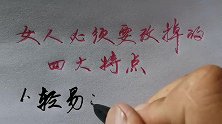 女人必须要改掉的
四大特点
1.轻易